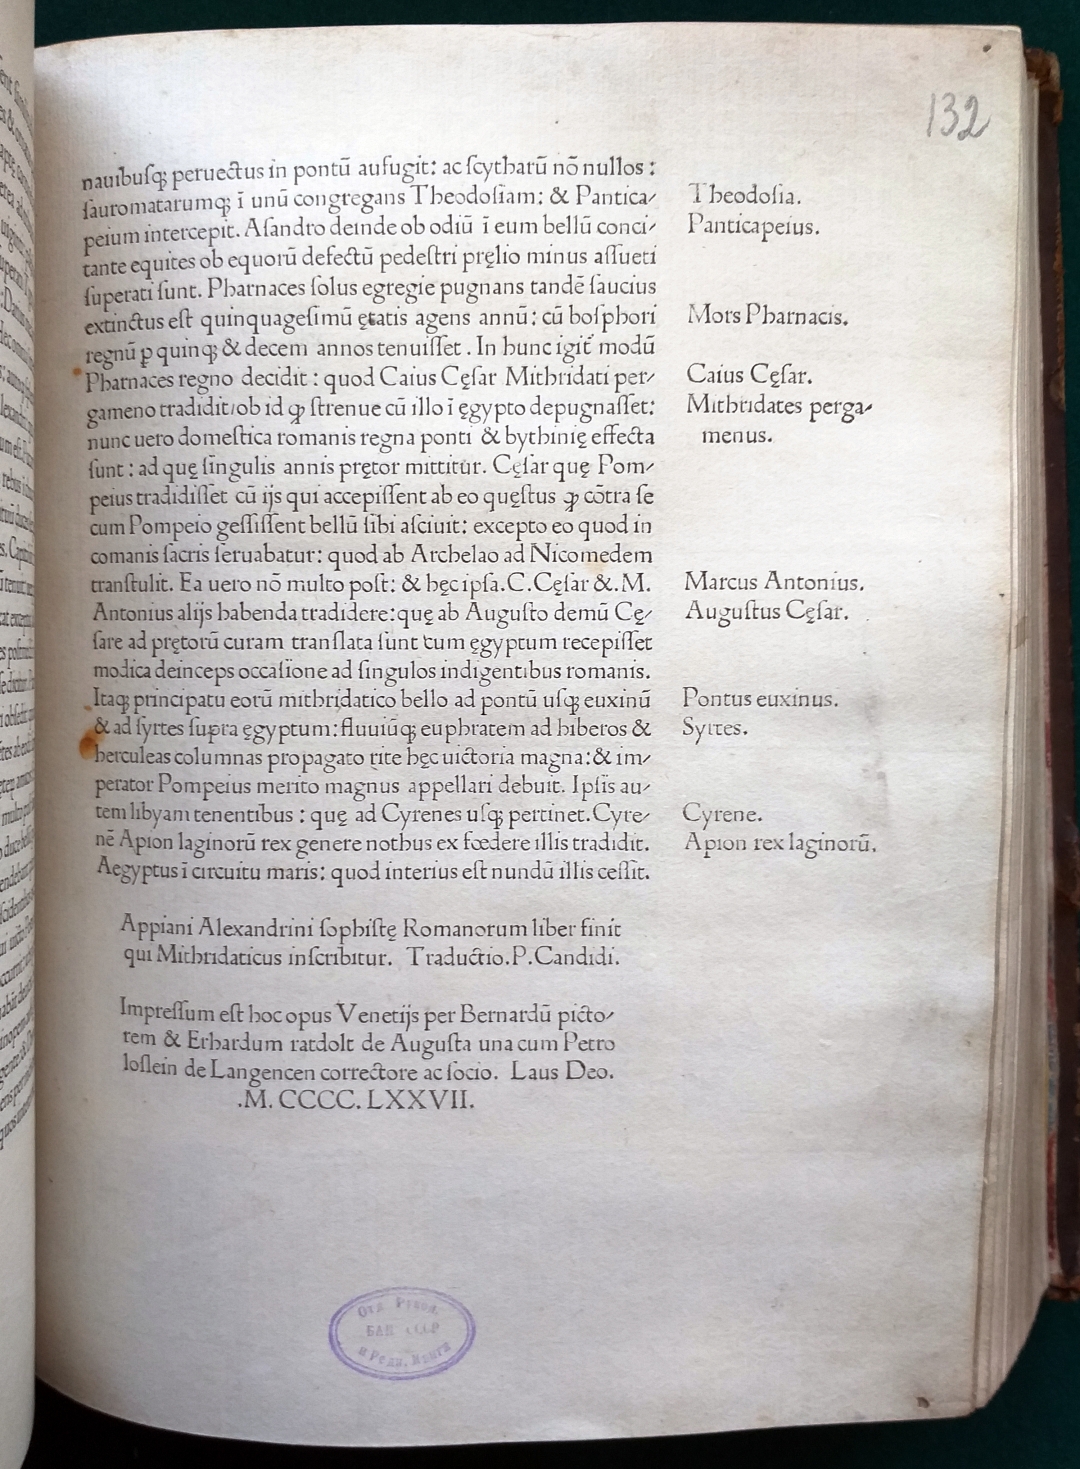 132
nauibusqꝫ peruectus in pontū aufugit: ac scytharū nō nullos:
sauromatarumqꝫ ī unū congregans Theodosiam: & Pantica/
peium intercepit. Asandro deinde ob odiū ī eum bellū conci/
tante equites ob equorū defectū pedestri pręlio minus assueti
superati sunt. Pharnaces solus egregie pugnans tandē saucius
extinctus est quinquagesimū ętatis agens annū: cū bosphori
regnū ꝑ quinqꝫ & decem annos tenuisset. In hunc igit̃ modū
Pharnaces regno decidit: quod Caius Cęsar Mithridati per/
gameno tradidit/ob id ꝙ strenue cū illo ī ęgypto depugnasset:
nunc uero domestica romanis regna ponti & bythinię effecta
sunt: ad quę singulis annis pretor mittitur. Cęsar quę Pom/
peius tradidisset cū ijs qui accepissent ab eo quęstus ꝙ cōtra se
cum Pompeio gessissent bellū sibi asciuit: excepto eo quod in
comanis sacris seruabatur: quod ab Archelao ad Nicomedem
transtulit. Ea uero nō multo post: & hęc ipsa.C.Cęsar &.M.
Antonius alijs habenda tradidere: quę ab Augusto demū Cę/
sare ad pretorū curam translata sunt cum ęgyptum recepisset
modica deinceps occasione ad singulos indigentibus romanis.
Itaqꝫ principatu eorū mithridatico bello ad pontū usqꝫ euxinū
& ad syrtes supra ęgyptum: fluuiūqꝫ euphratem ad hiberos &
herculeas columnas propagato rite hęc uictoria magna: & im/
perator Pompeius merito magnus appellari debuit. Ipsis au/
tem libyam tenentibus: quę ad Cyrenes usqꝫ pertinet. Cyre/
nē Apion laginorū rex genere nothus ex fœdere illis tradidit.
Aegyptus ī circuitu maris: quod interius est nundū illis cessit.
Theodosia.
Panticapeius.
Mors Pharnacis.
Caius Cęsar.
Mithridates perga/
menus.
Marcus Antonius.
Augustus Cęsar.
Pontus euxinus.
Syrtes.
Cyrene.
Apion rex laginorū.
Appiani Alexandrini sophistę Romanorum liber finit
qui Mithridaticus inscribitur. Traductio.P.Candidi.
Impressum est hoc opus Venetijs per Bernardū picto/
rem & Erhardum ratdolt de Augusta una cum Petro
loslein de Langencen correctore ac socio. Laus Deo.
.M.CCCC.LXXVII.
Отд. Рукоп.
БАН СССР
и Редк. Книги